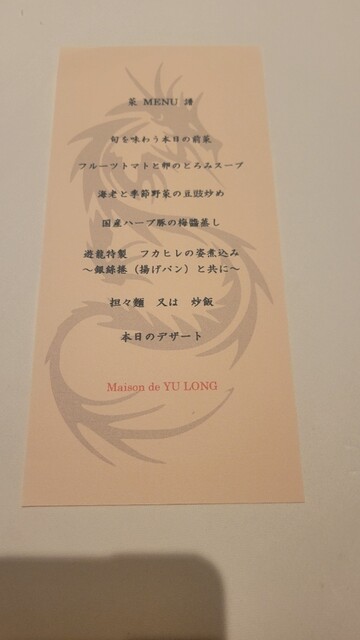 菜 MENU 譜
旬を味わう本日の前菜
フルーツトマトと卵のとろみスープ
海老と季節野菜の豆豉炒め
国産ハーブ豚の梅醬蒸し
遊龍特製　フカヒレの姿煮込み
～銀絲捲（揚げパン）と共に～
担々麺　又は　炒飯
本日のデザート
Maison de YU LONG